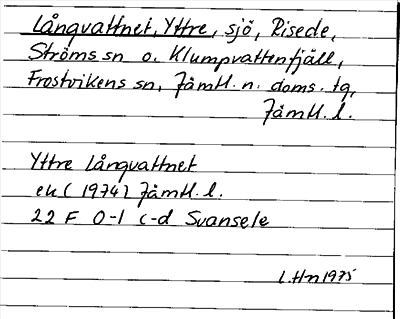 Långvattnet, Yttre, sjö, Risede,
Ströms sn o. Klumpvattenfjäll,
Frostvikens sn, Jämtl. n. doms. tg,
Jämtl. l.
Yttre Långvattnet
ek (1974) Jämtl. l.
22 F 0-1 c-d Svansele
L.Hn 1975